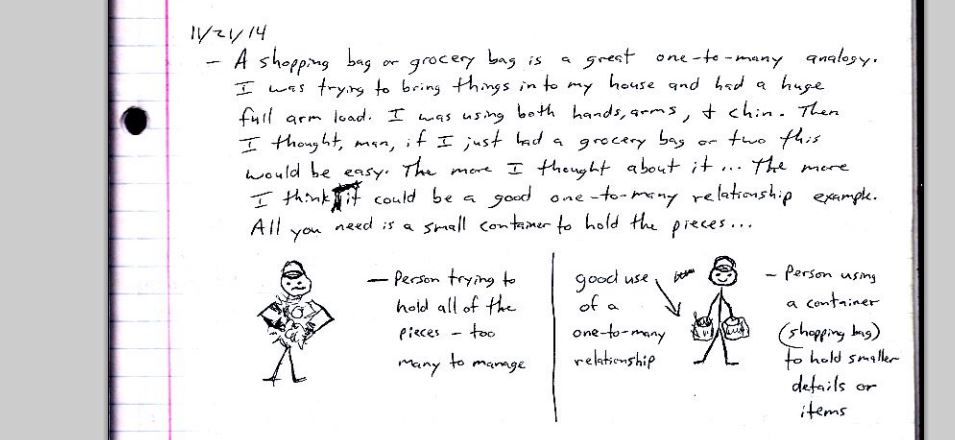 11/21/14
- A shopping bag or grocery bag is a great one-to-many analogy.
I was trying to bring things in to my house and had a huge
full arm load. I was using both hands, arms, + chin. Then
I thought, man, if I just had a grocery bag or two this
would be easy. The more I thought about it... the more
I think it could be a good one-to-many relationship example.
All you need is a small container to hold the pieces...
- Person trying to
hold all of the
pieces - too
many to manage
good use
of a
one-to-many
relationship
- Person using
a container
(shopping bag)
to hold smaller
details or
items